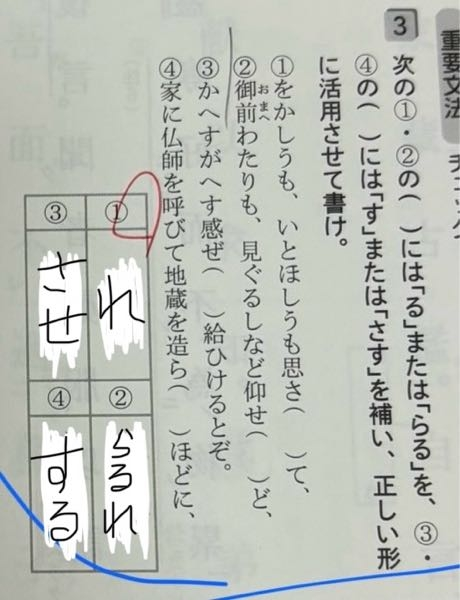 重要文法
3 次の①・②の( )には「る」または「らる」を、③・
④の( )には「す」または「さす」を補い、正しい形
に活用させて書け。
①をかしうも、いとほしうも思さ( )て、
②御前わたりも、見ぐるしなど仰せ( )ど、
おまへ
③かへすがへす感ぜ( )給ひけるとぞ。
④家に仏師を呼びて地蔵を造ら( )ほどに、
① れ
② らるれ
③ させ
④ する